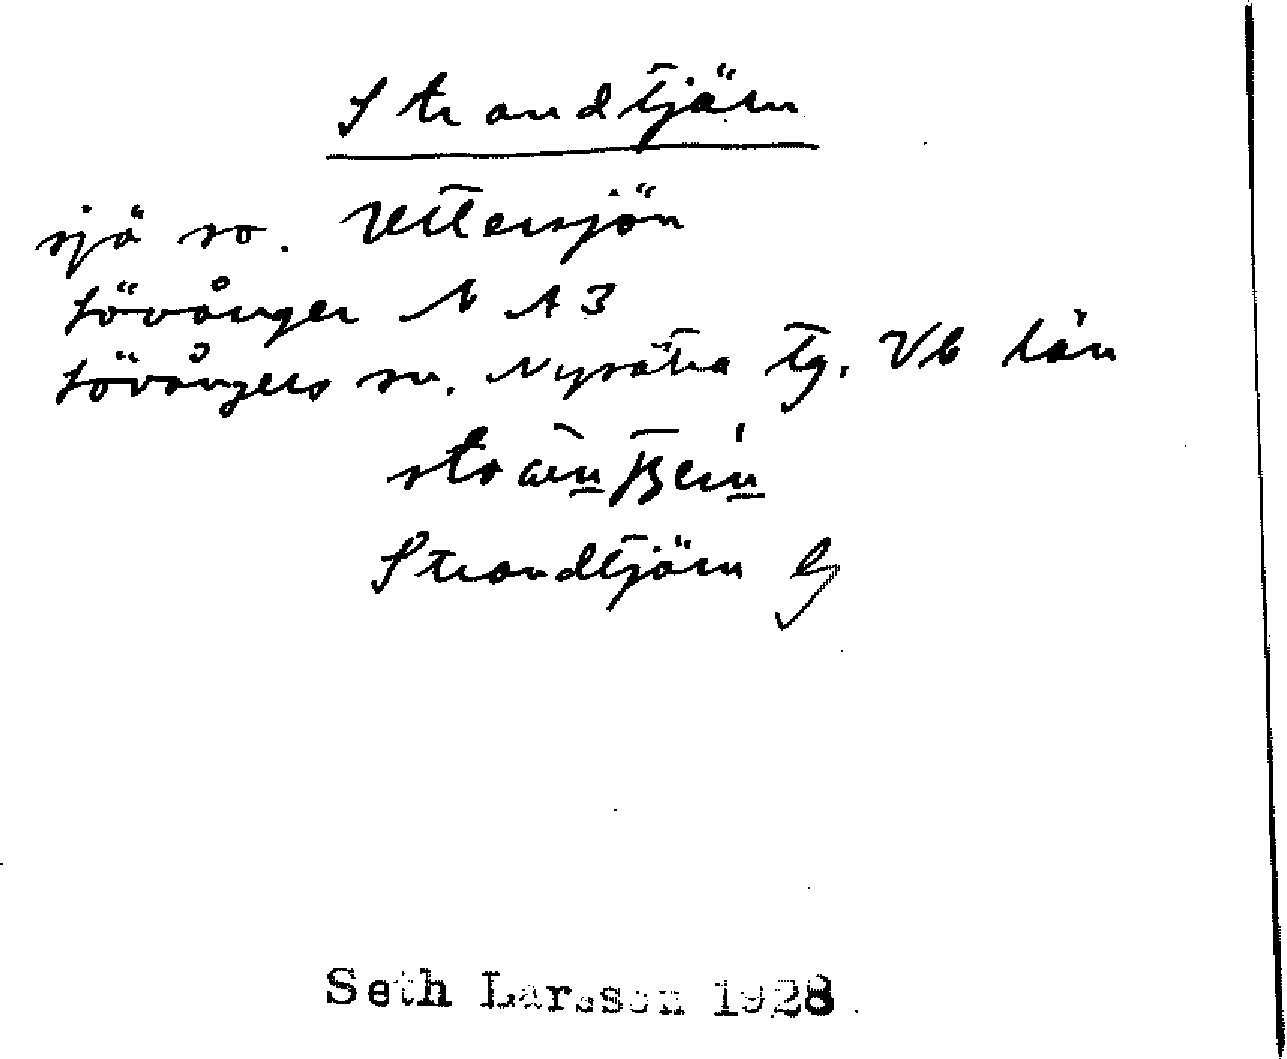 Strandtjärn
sjö so. Vettersjön
Lövånger N A 3
Lövångers sn. Nysätra tg. Vb län
Strandtjärn
Seth Larsson 1928